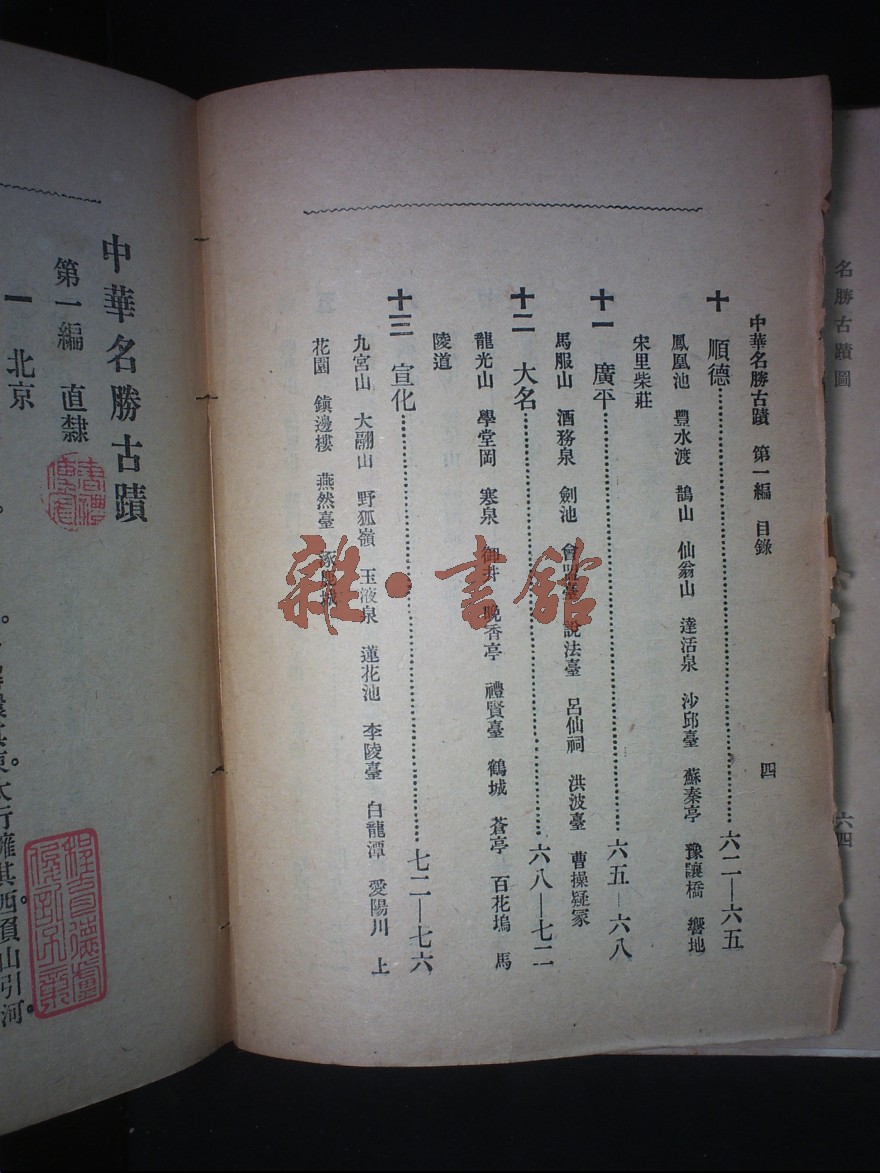 名勝古蹟圖
六四
中華名勝古蹟 第一編 目錄
四
十 順德……六二—六五
鳳凰池 豐水渡 鵲山 仙翁山 達活泉 沙邱臺 蘇秦亭 豫讓橋 響地
宋里柴莊
十一 廣平……六五—六八
馬服山 酒務泉 劍池 會盟臺 說法臺 呂仙祠 洪波臺 曹操疑冢
十二 大名……六八—七二
龍光山 學堂岡 寒泉 御井 晚香亭 禮賢臺 鶴城 蒼亭 百花塢 馬
陵道
十三 宣化……七二—七六
九宮山 大翮山 野狐嶺 玉液泉 蓮花池 李陵臺 白龍潭 愛陽川 上
花園 鎮邊樓 燕然臺 涿鹿城
雜·書館
中華名勝古蹟
第一編 直隸
一 北京
其東。太行擁其西。負山引河。